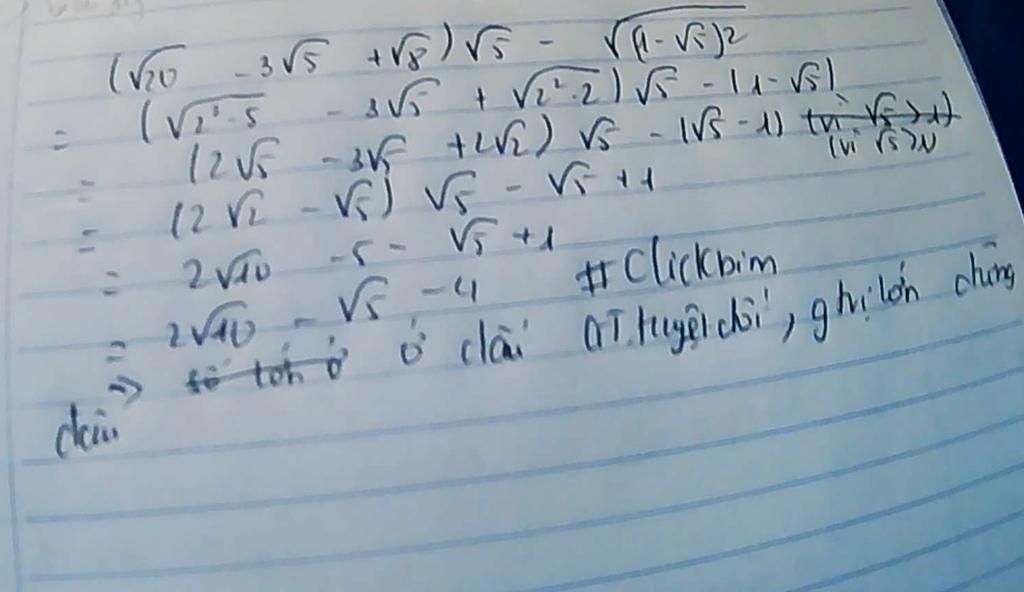 (√20 - 3√5 + √8)√5 - √(1-√5)2
= (√2²·5 - 3√5 + √2²·2)√5 - |1-√5|
= (2√5 - 3√5 + 2√2)√5 - (√5-1) (vì √5>1)
(vì √5>1)
= (2√2 - √5)√5 - √5+1
= 2√10 - 5 - √5+1
= 2√10 - √5 - 4 #Clickbim
=> số lớn ở ở dấu GT.tuyệt đối, gtrị lớn đứng
đầu